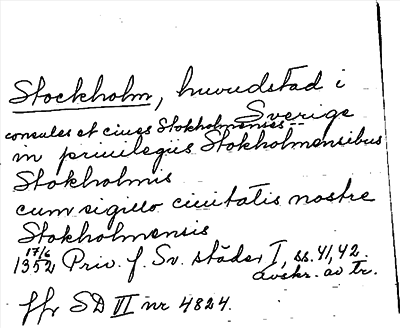 Stockholm, huvudstad i
Sverige
consules et ciues Stokholmenses --
in priuilegiis Stokholmensibus
Stokholmis
cum sigillo ciuitatis nostre
Stokholmensis
17/6
1352 Priv. f. Sv. städer I, ss. 41, 42.
avskr. av tr.
jfr SD VI nr 4824.